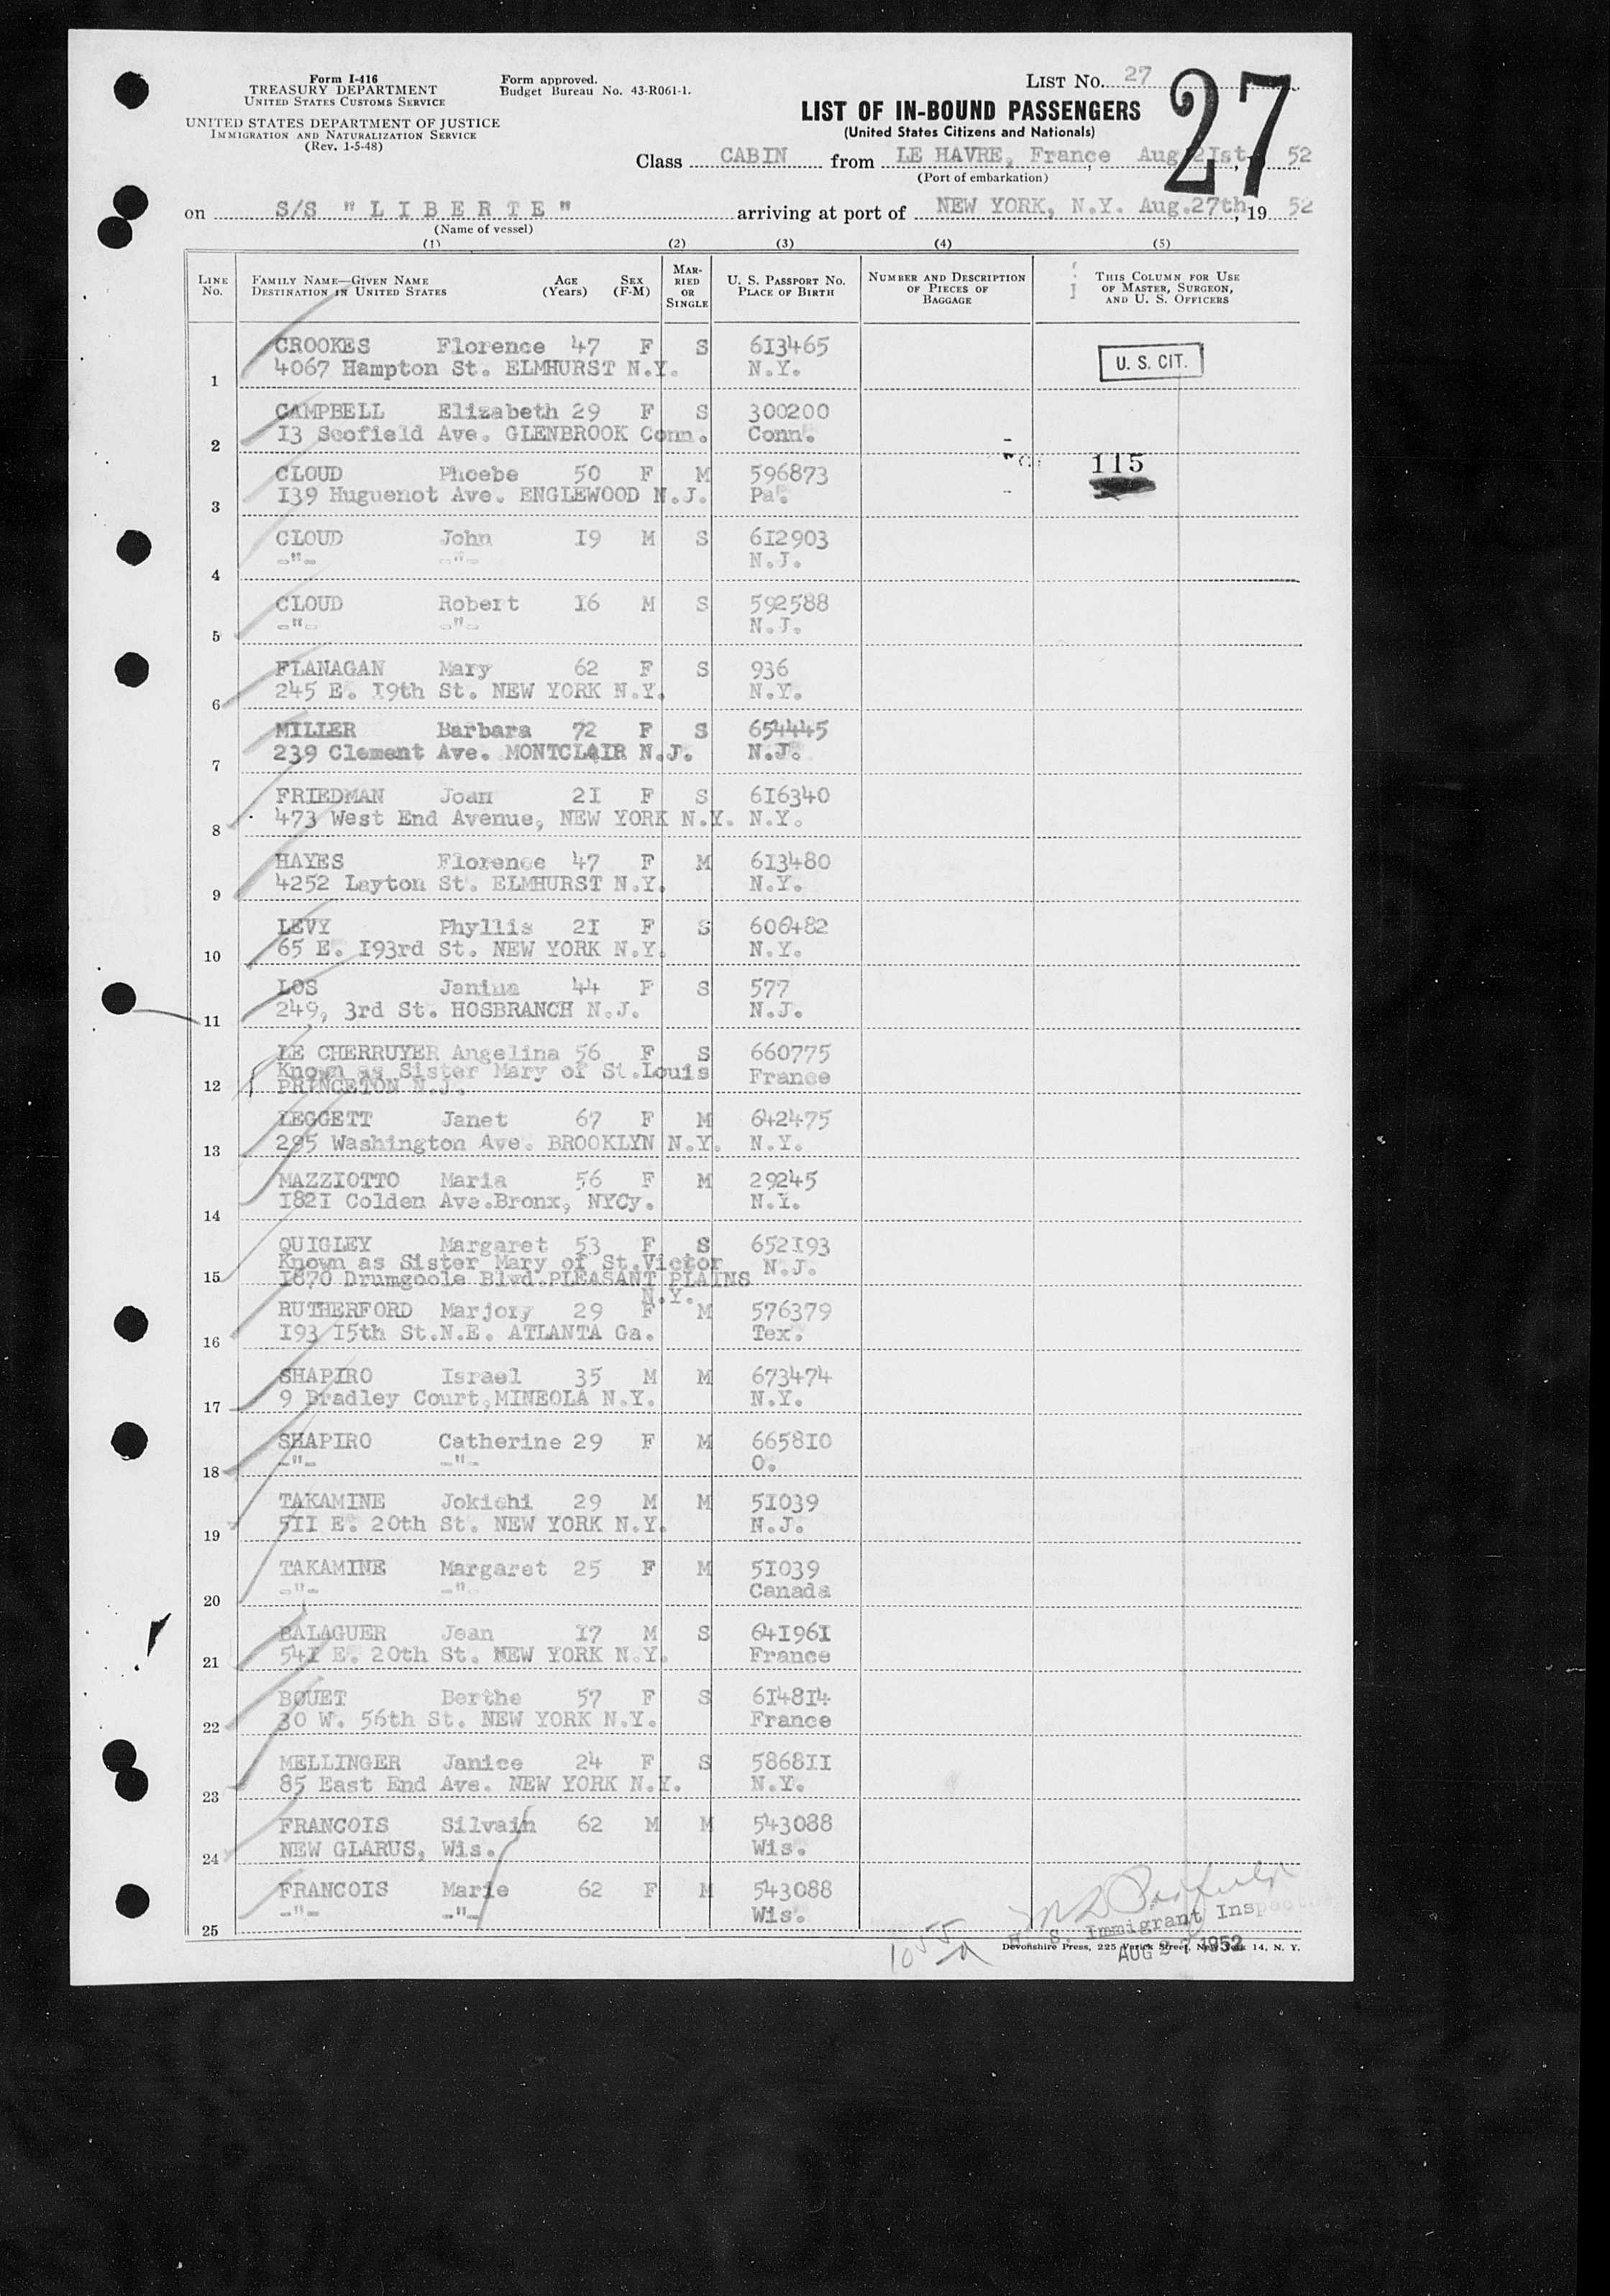 Form I-416
TREASURY DEPARTMENT
UNITED STATES CUSTOMS SERVICE
UNITED STATES DEPARTMENT OF JUSTICE
IMMIGRATION AND NATURALIZATION SERVICE
(Rev. 1-5-48)
Form approved.
Budget Bureau No. 43-R061-1.
LIST No. 27
27
LIST OF IN-BOUND PASSENGERS
(United States Citizens and Nationals)
Class CABIN from LE HAVRE, France, Aug 2Ist, 1 52
(Port of embarkation)
on S/S "LIBERTE" arriving at port of NEW YORK, N.Y. Aug.27th, 19 52
(Name of vessel)
(1) (2) (3) (4) (5)
LINE No. FAMILY NAME—GIVEN NAME DESTINATION IN UNITED STATES AGE (Years) SEX (F-M) MARRIED OR SINGLE U. S. PASSPORT No. PLACE OF BIRTH NUMBER AND DESCRIPTION OF PIECES OF BAGGAGE THIS COLUMN FOR USE OF MASTER, SURGEON, AND U. S. OFFICERS
CROOKES Florence 47 F S 613465
1 4067 Hampton St. ELMHURST N.Y. N.Y. U. S. CIT.
CAMPBELL Elizabeth 29 F S 300200
2 I3 Scofield Ave. GLENBROOK Conn. Conn.
CLOUD Phoebe 50 F M 596873 115
3 I39 Huguenot Ave. ENGLEWOOD N.J. Pa.
CLOUD John I9 M S 6I2903
4 -"- -"- N.J.
CLOUD Robert I6 M S 592588
5 -"- -"- N.J.
FLANAGAN Mary 62 F S 936
6 245 E. I9th St. NEW YORK N.Y. N.Y.
MILLER Barbara 72 F S 654445
7 239 Clement Ave. MONTCLAIR N.J. N.J.
FRIEDMAN Joan 2I F S 6I6340
8 473 West End Avenue, NEW YORK N.Y. N.Y.
HAYES Florence 47 F M 613480
9 4252 Layton St. ELMHURST N.Y. N.Y.
LEVY Phyllis 2I F S 606482
10 65 E. I93rd St. NEW YORK N.Y. N.Y.
LOS Janina 44 F S 577
11 249, 3rd St. HOSBRANCH N.J. N.J.
LE CHERRUYER Angelina 56 F S 660775
Known as Sister Mary of St.Louis France
12 PRINCETON N.J.
LEGGETT Janet 67 F M 642475
13 295 Washington Ave. BROOKLYN N.Y. N.Y.
MAZZIOTTO Maria 56 F M 29245
14 I82I Colden Ave.Bronx, NYCy. N.Y.
QUIGLEY Margaret 53 F S 652I93
Known as Sister Mary of St.Victor N.J.
15 I870 Drumgoole Blvd.PLEASANT PLAINS
N.Y.
RUTHERFORD Marjory 29 F M 576379
16 I93 I5th St.N.E. ATLANTA Ga. Tex.
SHAPIRO Israel 35 M M 673474
17 9 Bradley Court,MINEOLA N.Y. N.Y.
SHAPIRO Catherine 29 F M 6658I0
18 -"- -"- O.
TAKAMINE Jokichi 29 M M 5I039
19 5II E. 20th St. NEW YORK N.Y. N.J.
TAKAMINE Margaret 25 F M 5I039
20 -"- -"- Canada
BALAGUER Jean I7 M S 64I96I
21 54I E. 20th St. NEW YORK N.Y. France
BOUET Berthe 57 F S 6I48I4
22 30 W. 56th St. NEW YORK N.Y. France
MELLINGER Janice 24 F S 5868II
23 85 East End Ave. NEW YORK N.Y. N.Y.
FRANCOIS Silvain 62 M M 543088
24 NEW GLARUS, Wis. Wis.
FRANCOIS Marie 62 F M 543088
25 -"- -"- Wis.
U. S. Immigrant Inspector
Devonshire Press, 225 Varick Street, New York 14, N. Y.
AUG 27 1952